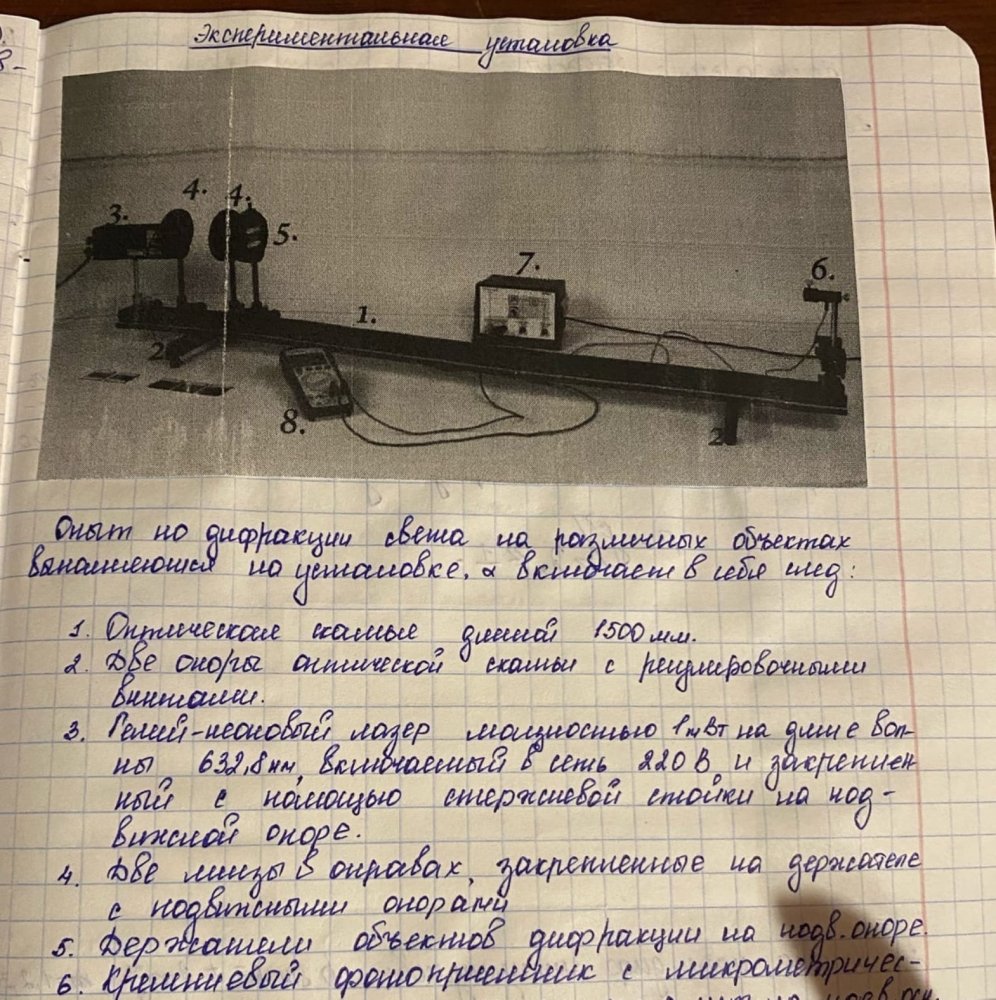 Экспериментальная установка
4.
4.
3.
5.
7.
6.
1.
2
8.
2
Опыт по дифракции света на различных объектах
выполняются на установке, а включает в себя след:
1. Оптическая скамья длиной 1500 мм.
2. Две опоры оптической скамьи с регулировочными
винтами.
3. Гелий-неоновый лазер мощностью 1 мВт на длине вол-
ны 632,8 нм, включаемый в сеть 220 В и закреплен
ный с помощью стержневой стойки на под-
вижной опоре.
4. Две линзы в оправах, закрепленные на держателе
с подвижными опорами
5. Держатели объектов дифракции на подв. опоре.
6. Кремниевый фотоприемник с микрометричес-